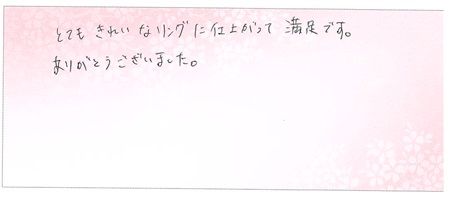 とても きれいなリングに仕上がって 満足です。
ありがとうございました。